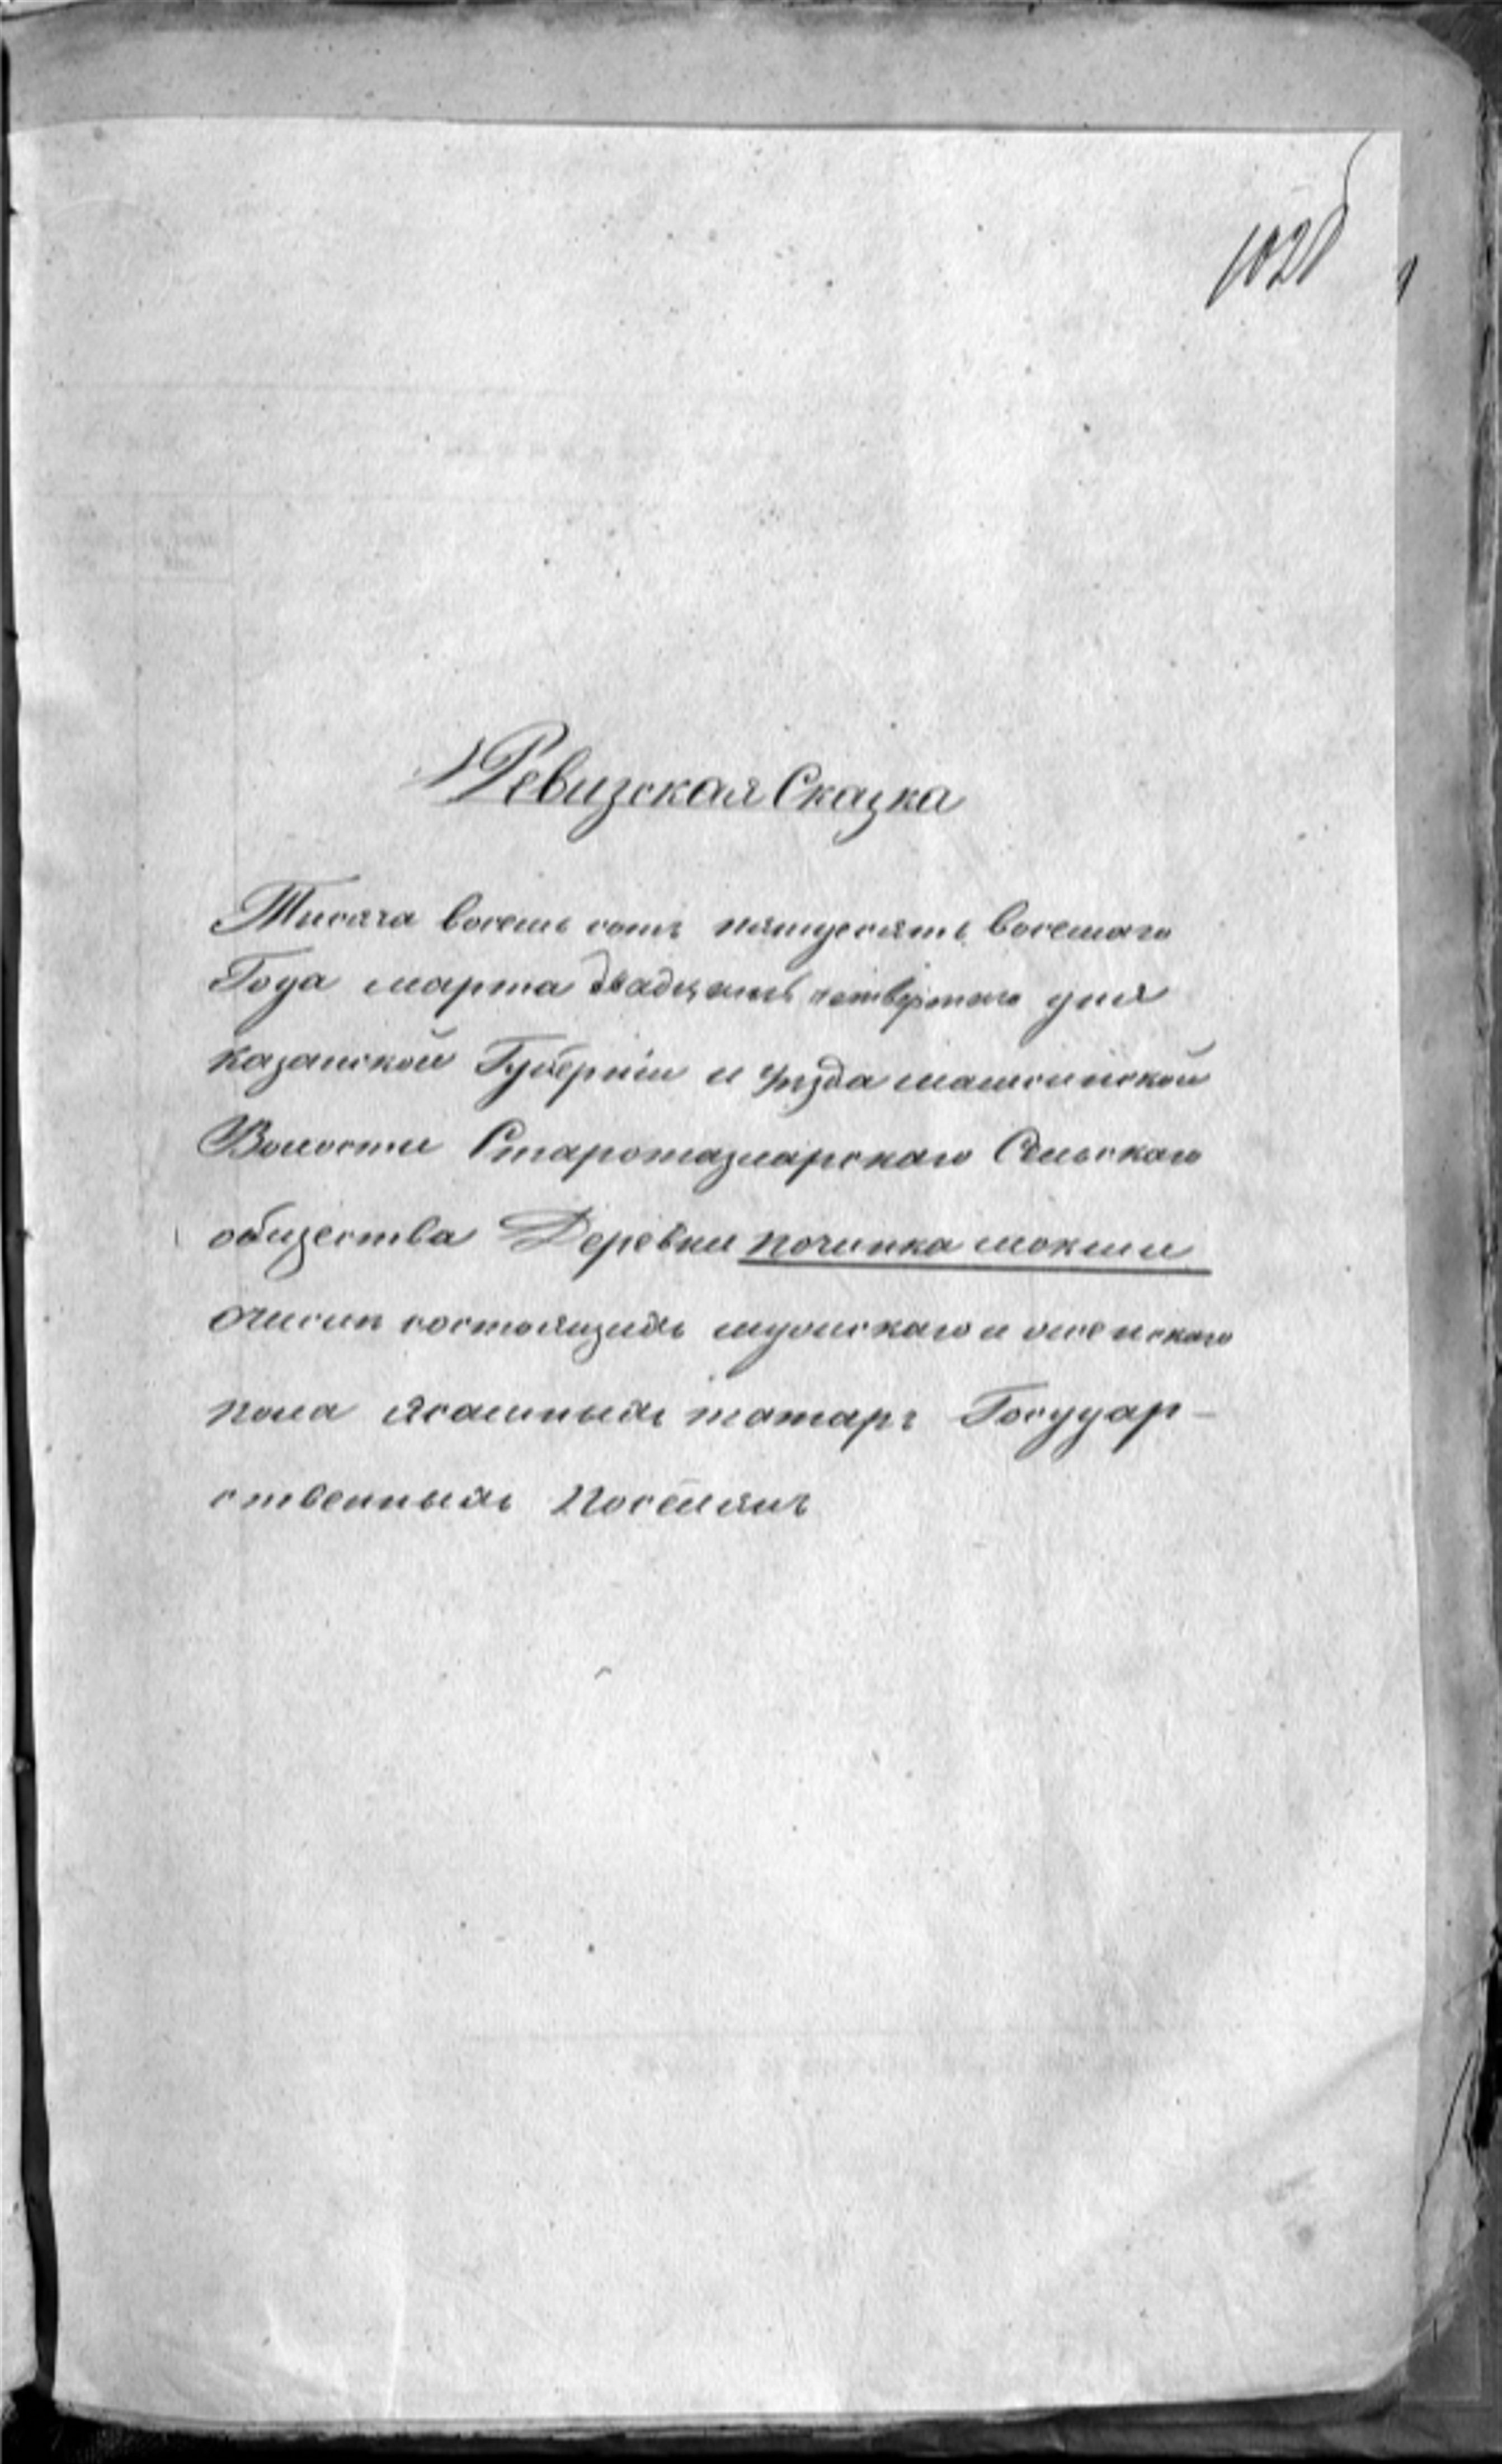 1028
Ревизская Сказка
Тисяча восемь сотъ пятдесять восемаго
Года марта двадцать четвертаго дня
казанской Губерніи и уѣзда машсинской
Волости Старотазларскаго Сельскаго
общества Деревни починка мокши
очисле состоящихъ мужскаго и женскаго
пола Ясашныхъ татаръ Государ-
ственныхъ Поселянъ